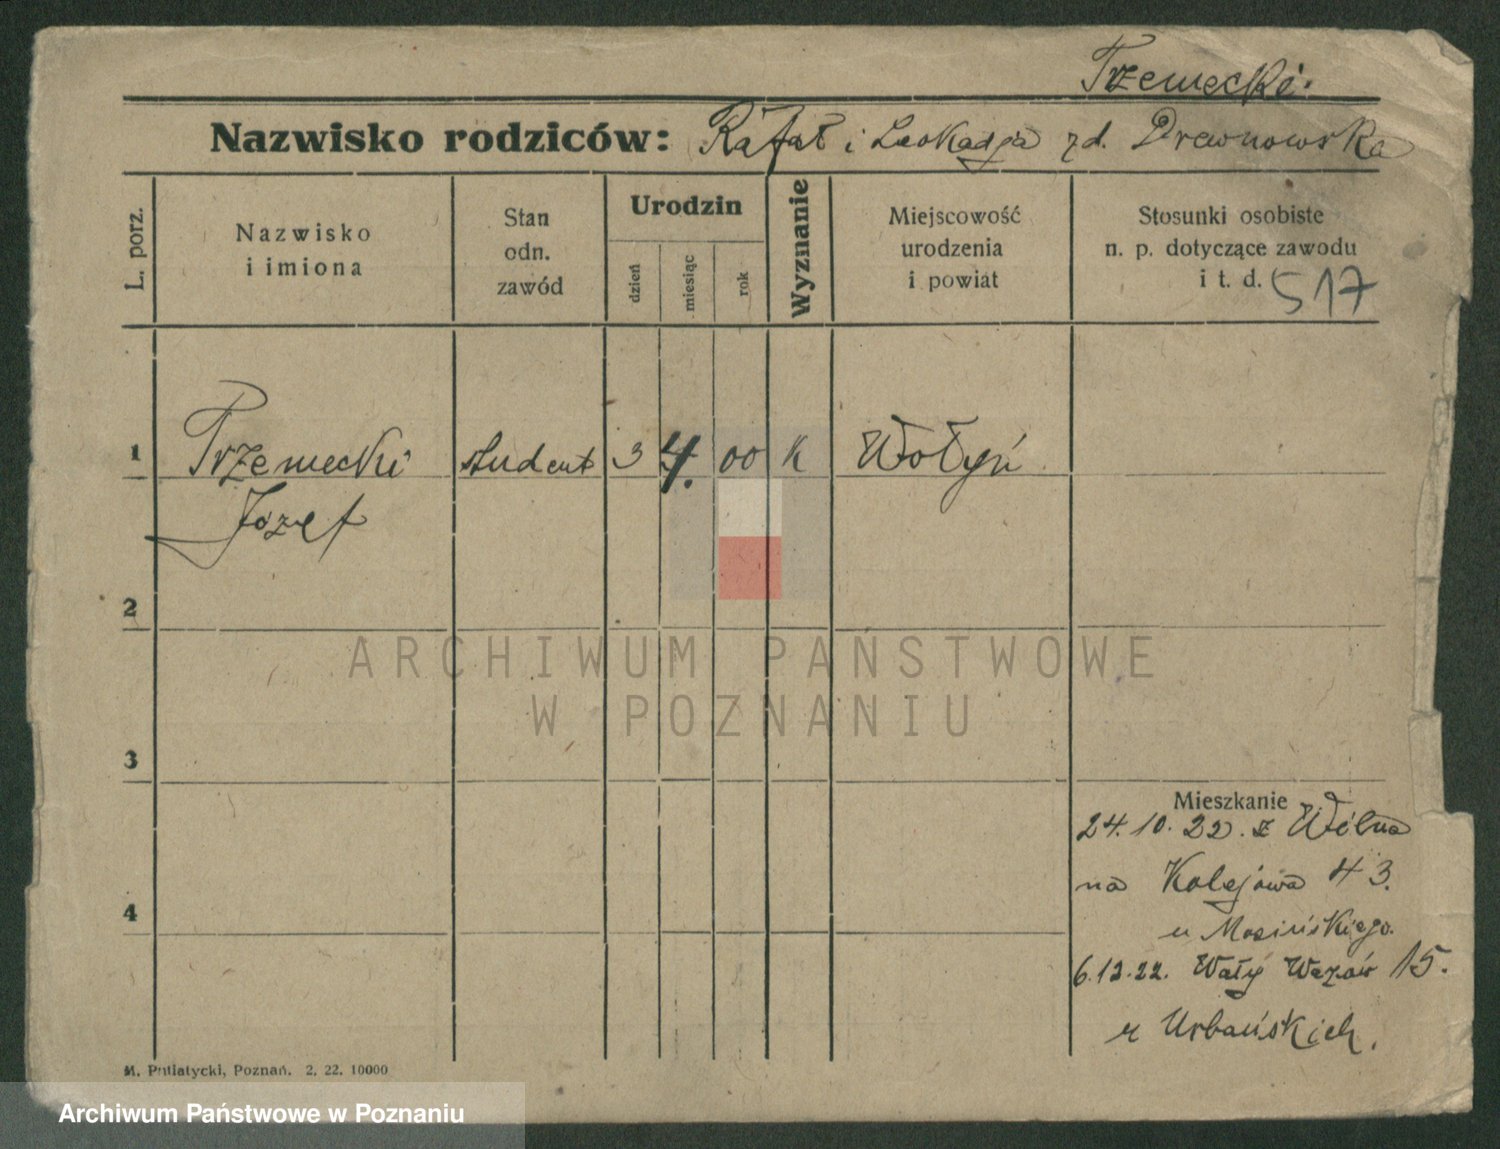 Trzemecki.
Nazwisko rodziców: Rafał i Leokadja zd. Drewnowska
L. porz.
Nazwisko
i imiona
Stan
odn.
zawód
Urodzin
dzień
miesiąc
rok
Wyznanie
Miejscowość
urodzenia
i powiat
Stosunki osobiste
n. p. dotyczące zawodu
i t. d. 517
1 Trzemecki student 3 4. 00 K Wołyń
Józef
2
3
4
Mieszkanie
24.10.22. z Wilna
na Kolejowa 43.
u Mosińskiego.
6.12.22. Wały Wazów 15.
u Urbańskich.
M. Putiatycki, Poznań. 2. 22. 10000
ARCHIWUM PAŃSTWOWE
W POZNANIU
Archiwum Państwowe w Poznaniu